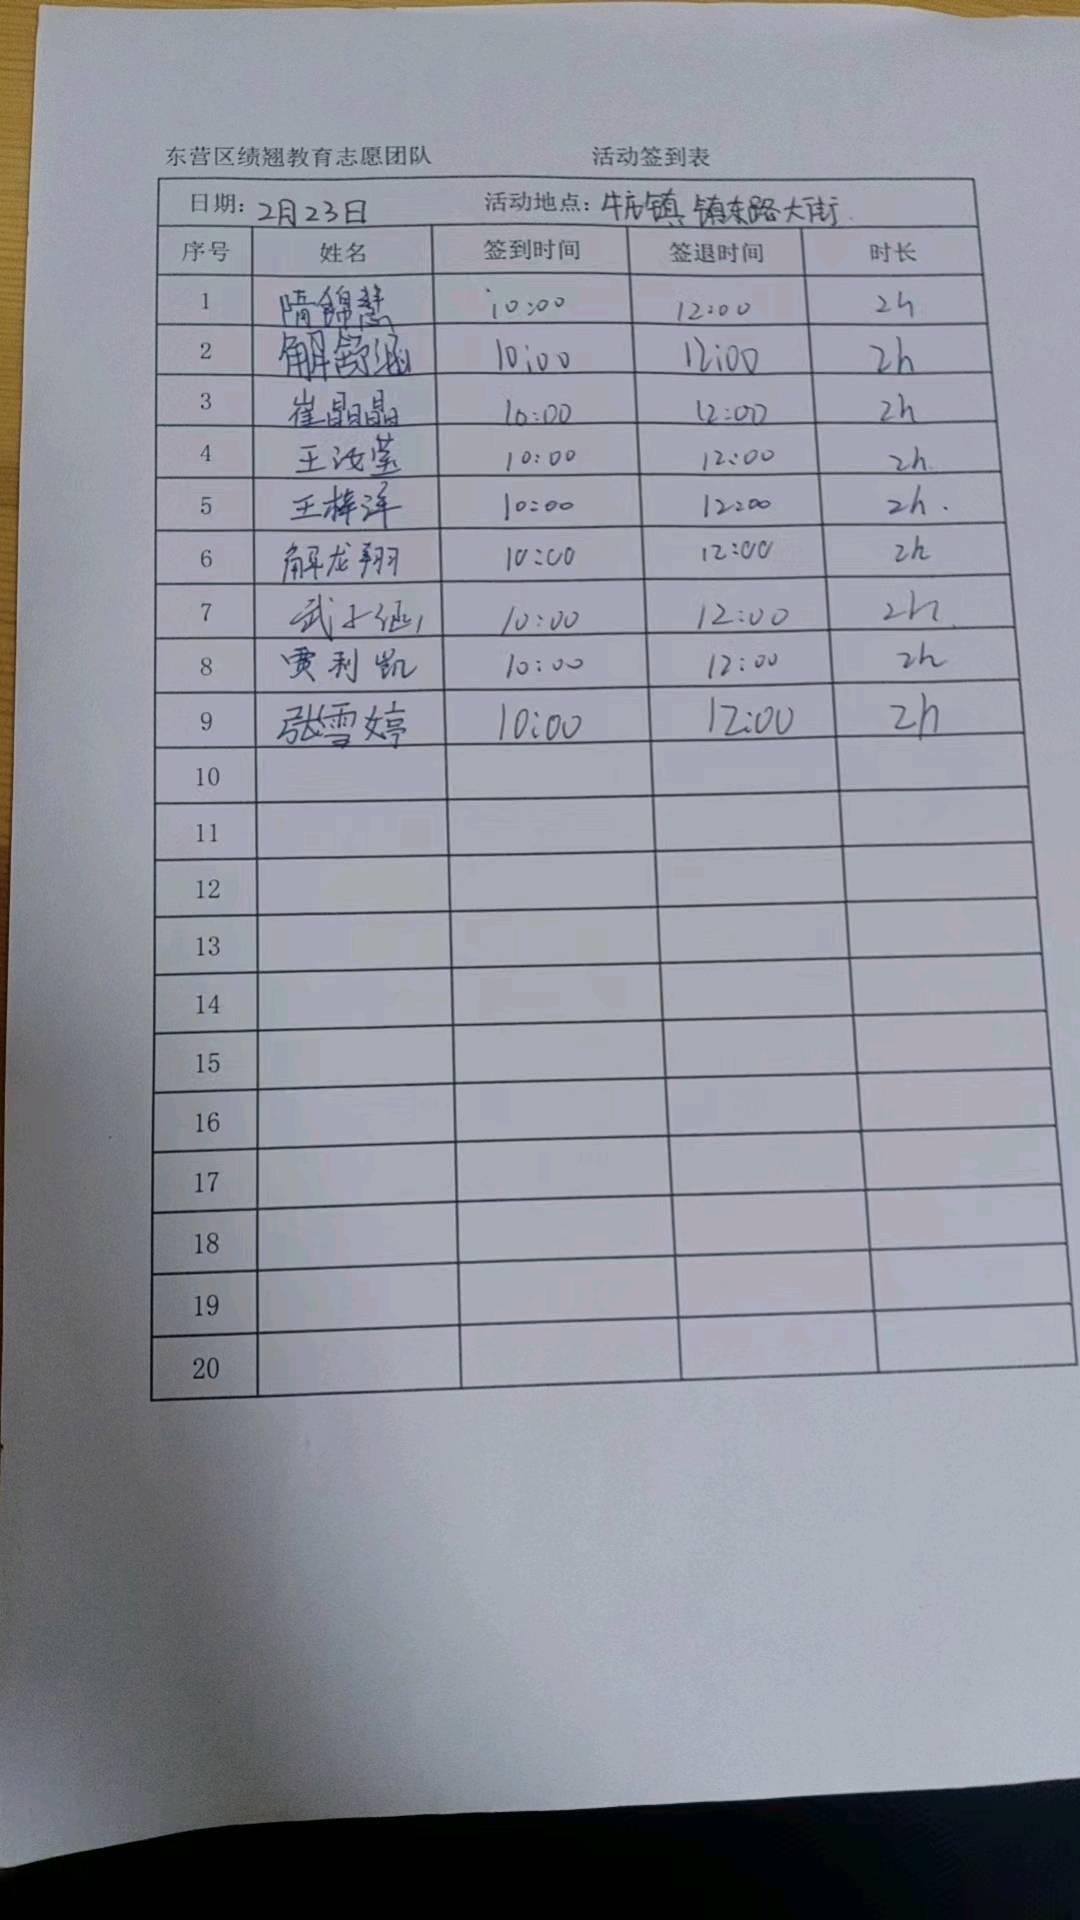 东营区绩翘教育志愿团队 活动签到表
日期：2月23日 活动地点：牛庄镇 镇东路大街
序号 姓名 签到时间 签退时间 时长
1 隋锦慧 10:00 12:00 2h
2 解舒涵 10:00 12:00 2h
3 崔晶晶 10:00 12:00 2h
4 王汝莹 10:00 12:00 2h
5 王梓洋 10:00 12:00 2h.
6 解龙翔 10:00 12:00 2h
7 10:00 12:00 2h
8 贾利凯 10:00 12:00 2h
9 张雪婷 10:00 12:00 2h
10
11
12
13
14
15
16
17
18
19
20